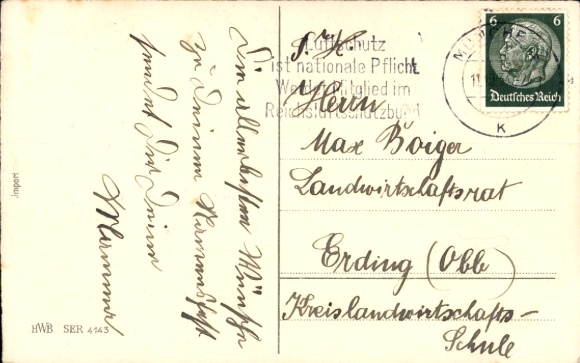 Die allerbesten Wünsche
zu Deinem Namensfest
sendet Dir Deine
Import
HWB SER 4143
S. H.
Herrn
Max Boiger
Landwirtschaftsrat
Erding (Obb)
Kreislandwirtschafts-
Schule
Luftschutz
ist nationale Pflicht
Werdet Mitglied im
Reichsluftschutzbund
MÜNCHEN
11
K
6 6
Deutsches Reich